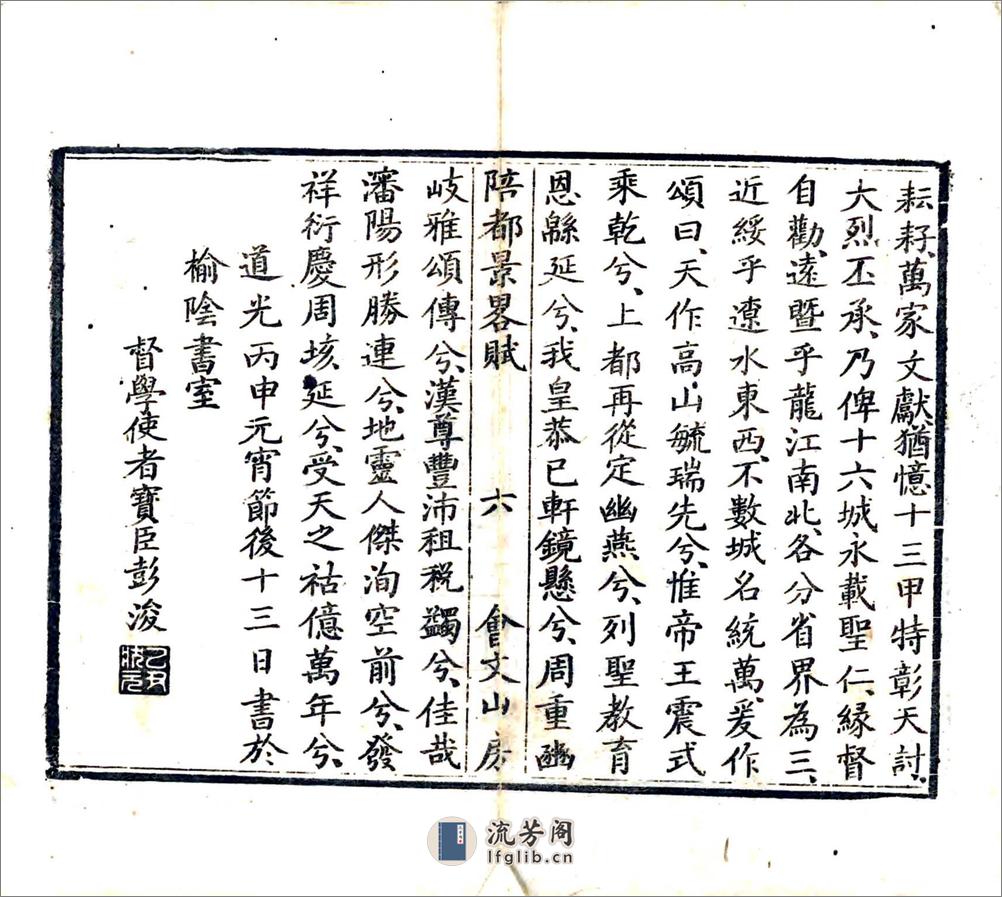 耘耔、萬家文獻猶憶十三甲特彰天討、
大烈丕承、乃俾十六城永載聖仁、緣督
自勸、遠暨乎龍江南北、各分省界為三、
近綏乎遼水東西、不數城名統萬、爰作
頌曰、天作高山毓瑞先兮、惟帝王震式
乘乾兮、上都再從定幽燕兮、列聖教育
恩緜延兮、我皇恭已軒鏡懸兮、周重豳
陪都景畧賦 六 會文山房
岐雅頌傳兮、漢尊豐沛租稅蠲兮、佳哉
瀋陽形勝連兮、地靈人傑洵空前兮、發
祥衍慶周垓延兮、受天之祜億萬年兮、
道光丙申元宵節後十三日書於
榆陰書室
督學使者寶臣彭浚
乙丑狀元
流芳阁
lfglib.cn